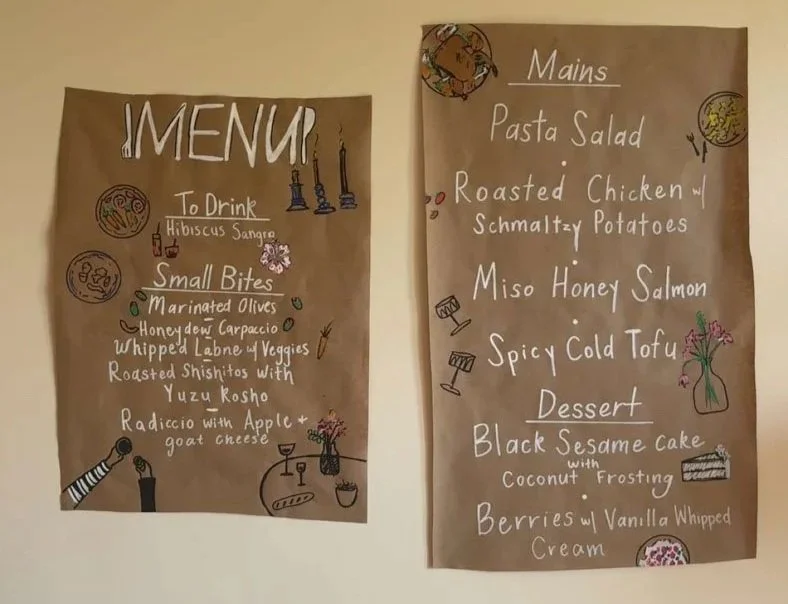 MENU
To Drink
Hibiscus Sangria
Small Bites
Marinated Olives
Honeydew Carpaccio
Whipped Labne w/ Veggies
Roasted Shishitos with
Yuzu Kosho
Radiccio with Apple +
goat cheese
Mains
Pasta Salad
Roasted Chicken w/
Schmaltzy Potatoes
Miso Honey Salmon
Spicy Cold Tofu
Dessert
Black Sesame Cake
with
Coconut Frosting
Berries w/ Vanilla Whipped
Cream